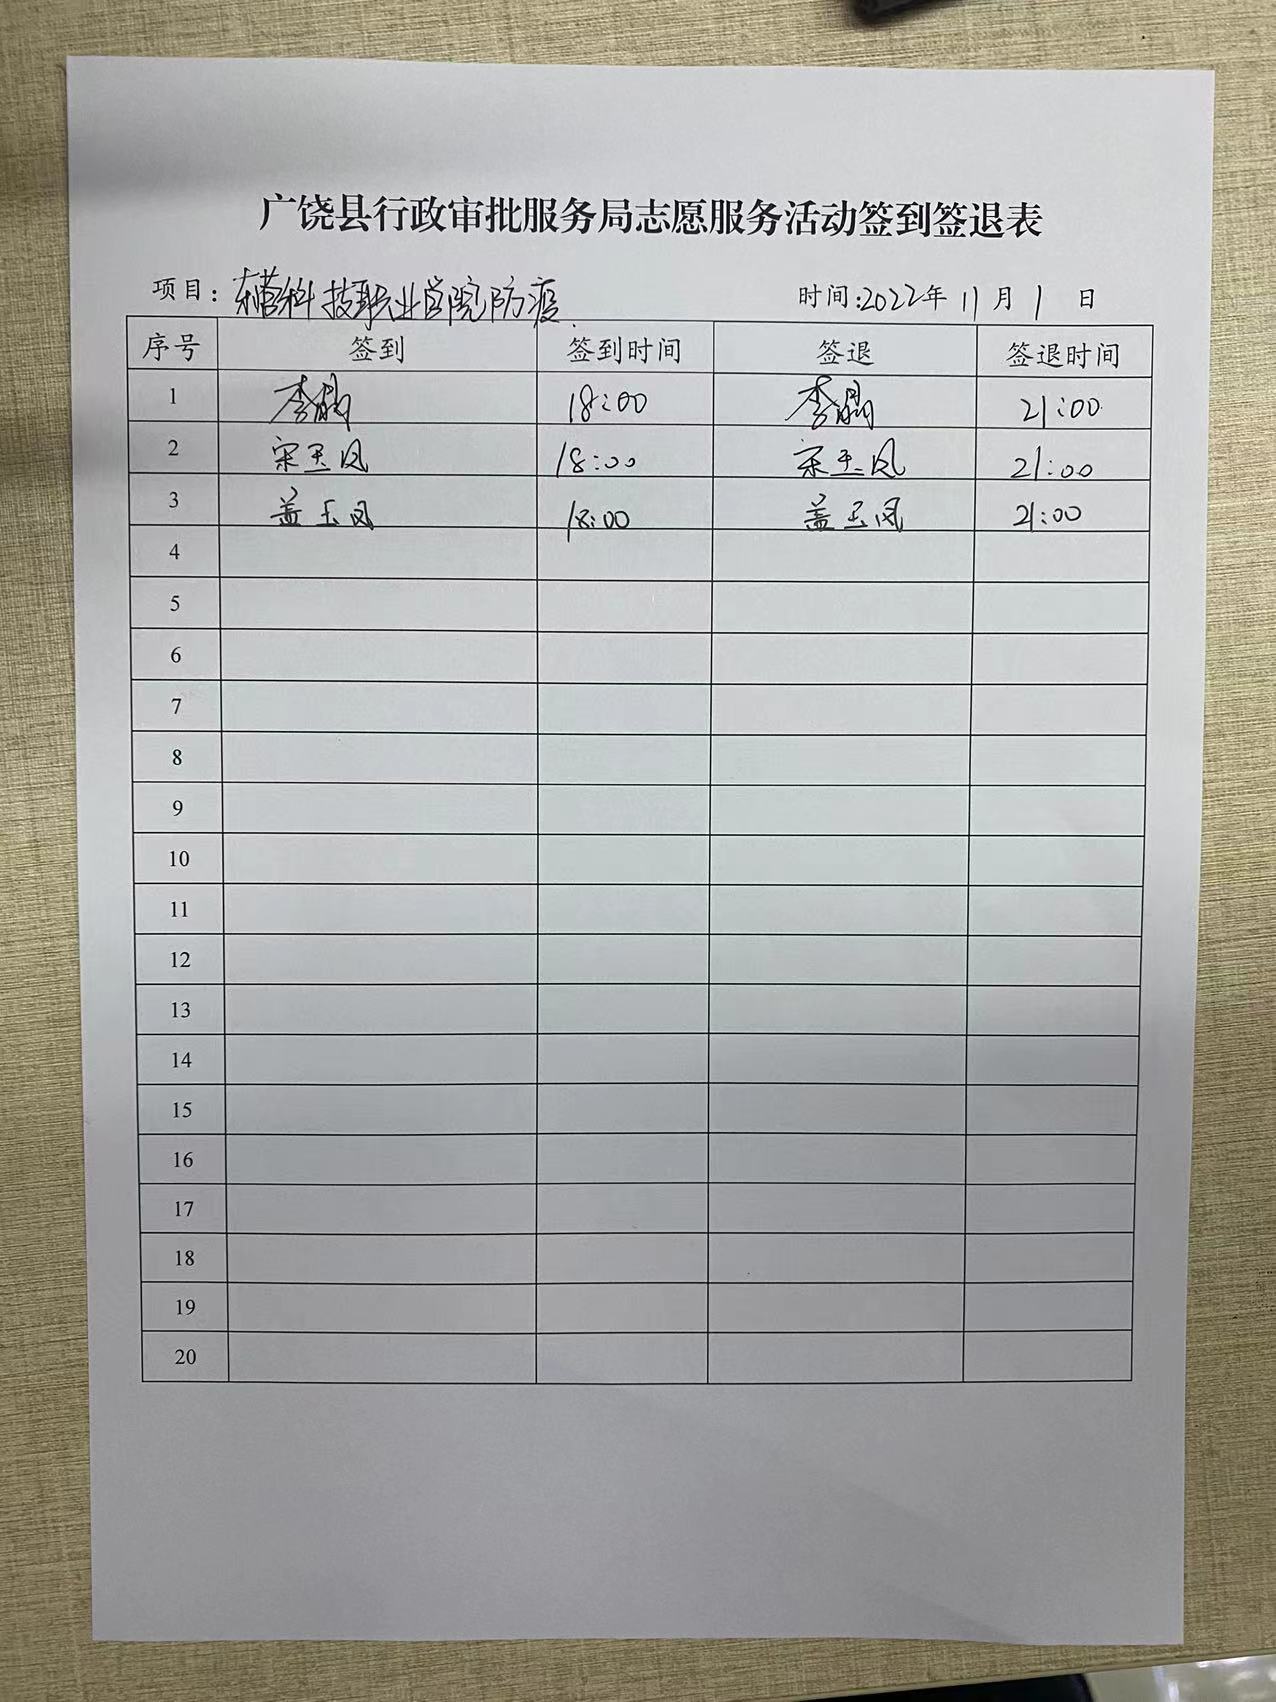 广饶县行政审批服务局志愿服务活动签到签退表
项目：东营科技职业学院防疫 时间：2022年 11 月 1 日
序号 签到 签到时间 签退 签退时间
1 李晶 18:00 李晶 21:00
2 宋玉凤 18:00 宋玉凤 21:00
3 盖玉凤 18:00 盖玉凤 21:00
4
5
6
7
8
9
10
11
12
13
14
15
16
17
18
19
20